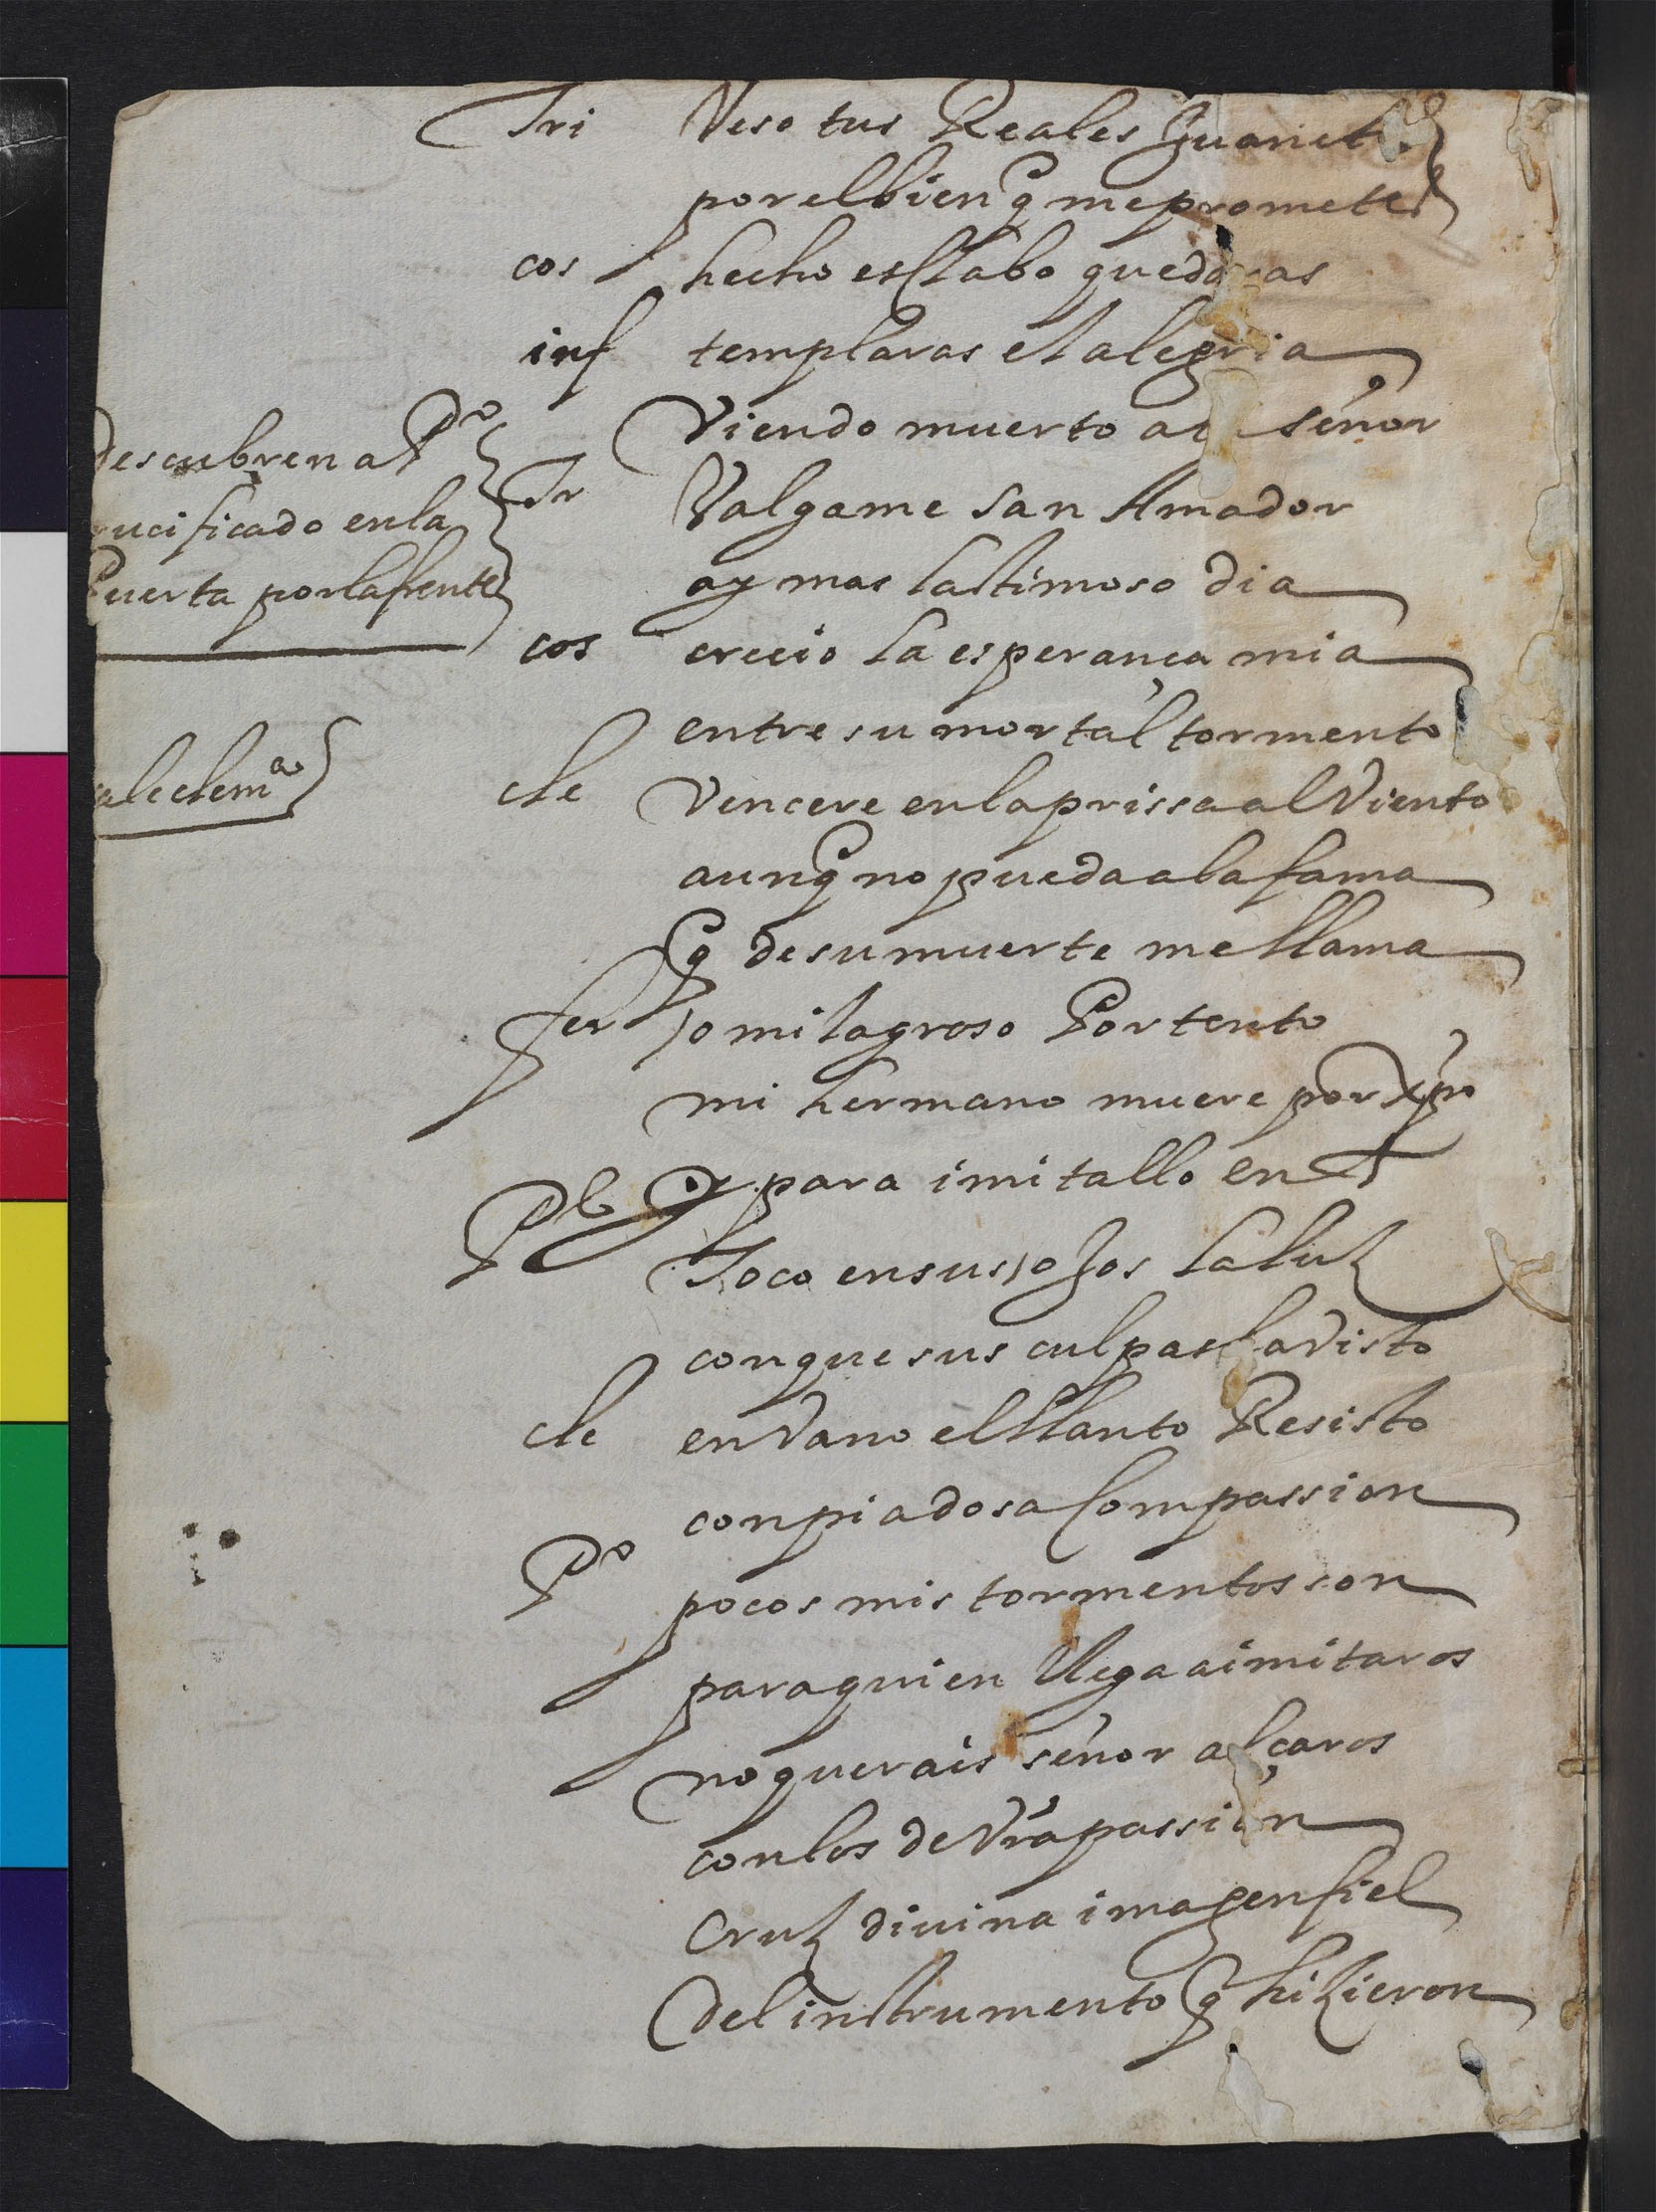 Tri Veso tus Reales Juanet
por el bien q̃ me promete
cos hecho esclabo quedaras
inf templaras el alegria
Viendo muerto a señor
descubren a Pº
ucificado en la
Puerta por la frente
Tr Valgame san Amador
ay mas lastimoso dia
cos crecio la esperança mia
entre su mortal tormento
ale clemª
cle Vencere en la prissa al Viento
aunq̃ no pueda a la fama
q̃ de su muerte me llama
fer o milagroso Portento
mi hermano muere por xpo
y para imitallo en
Pb Toco en sus ojos la luz
con que sus culpas a visto
cle en Vano el llanto Resisto
con piadosa Compassion
Pº pocos mis tormentos son
para quien llega a imitaros
no querais señor alçaros
con los de Vrã passion
Cruz diuina imagen fiel
del instrumento q̃ hizieron